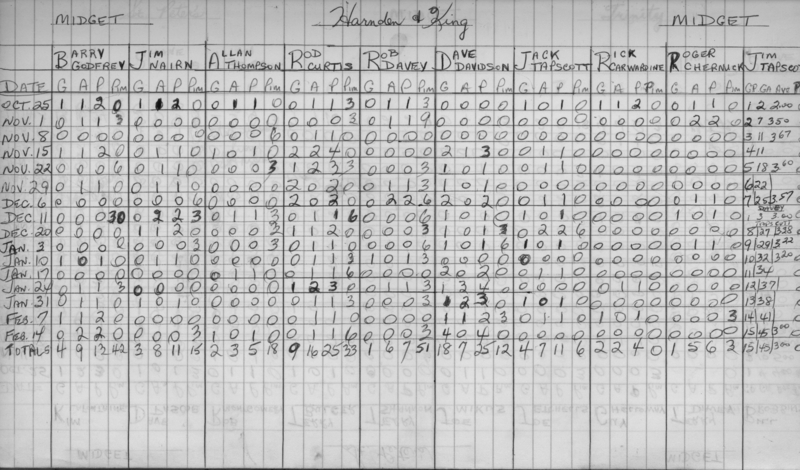 MIDGET Harnden & King MIDGET
BARRY GODFREY JIM NAIRN ALLAN THOMPSON ROD CURTIS ROB DAVEY DAVE DAVIDSON JACK TAPSCOTT RICK CARWARDINE ROGER CHERNICK JIM TAPSCOTT
DATE G A P Pim G A P Pim G A P Pim G A P Pim G A P Pim G A P Pim G A P Pim G A P Pim G A P Pim GP GA AVE P
OCT. 25 1 1 2 0 1 1 2 0 0 1 1 0 0 1 1 3 0 1 1 3 0 0 0 0 1 0 1 0 1 1 2 0 0 1 1 0 1 2 2.00
NOV. 1 0 1 1 3 0 0 0 0 0 0 0 0 0 0 0 3 0 1 1 9 0 0 0 0 0 0 0 0 0 0 0 0 0 2 2 0 2 7 3.50
NOV. 8 0 0 0 0 0 0 0 0 0 0 0 6 0 1 1 0 0 0 0 0 0 0 0 0 0 0 0 0 0 0 0 0 0 0 0 0 3 11 3.67
NOV. 15 1 1 2 0 0 1 1 0 1 0 1 0 2 2 4 0 0 0 0 0 2 1 3 0 0 1 1 0 0 0 0 0 0 0 0 0 4 11
NOV. 22 0 0 0 6 0 1 1 0 0 0 0 3 1 2 3 3 0 0 0 3 1 0 1 0 0 1 1 0 0 0 0 0 0 0 0 0 5 18 3.60
NOV. 29 0 1 1 0 0 1 1 0 0 0 0 0 2 0 2 0 0 1 1 3 1 0 1 0 0 0 0 0 0 0 0 0 0 0 0 0 6 22
DEC. 6 0 0 0 0 0 0 0 0 0 0 0 0 2 0 2 0 0 2 2 6 2 0 2 0 0 0 0 0 0 1 1 0 0 1 1 0 7 25 3.57
DEC. 11 0 0 0 30 0 2 2 3 0 1 1 3 0 1 6 0 0 0 6 0 1 1 0 1 0 1 0 0 0 0 0 1 0 1 0 1 3 3.00
DEC. 20 0 0 0 0 1 1 2 0 0 0 0 3 1 1 2 0 0 0 0 3 1 0 1 3 0 2 2 6 0 0 0 0 0 0 0 0 8 27 3.38
JAN. 3 0 0 0 0 0 0 0 3 0 0 0 3 0 1 1 0 0 0 0 6 1 0 1 6 1 0 1 0 0 0 0 0 0 1 1 0 9 29 3.22
JAN. 10 1 0 1 0 0 0 0 0 0 0 0 0 0 1 1 3 1 0 1 3 0 0 0 0 0 0 0 0 0 0 0 0 0 0 0 0 10 32 3.20
JAN. 17 0 0 0 0 0 0 0 0 0 1 1 0 0 1 1 6 0 0 0 0 2 0 2 0 0 1 1 0 0 0 0 0 0 0 0 0 11 34
JAN. 24 0 1 1 3 0 0 0 0 0 0 0 0 1 2 3 0 0 0 0 0 1 3 4 0 0 0 0 0 0 1 1 0 0 0 0 0 12 37
JAN 31 0 1 1 0 1 0 1 0 0 0 0 0 0 1 1 3 0 0 0 3 1 2 3 0 1 0 1 0 0 0 0 0 0 0 0 0 13 38
FEB. 7 1 1 2 0 0 0 0 0 0 0 0 0 0 1 1 0 0 0 0 0 1 1 2 3 0 1 1 0 1 0 1 0 0 0 0 3 14 41
FEB. 14 0 2 2 0 0 0 0 3 1 0 1 0 0 1 1 6 0 0 0 3 4 0 4 0 0 0 0 0 0 0 0 0 0 0 0 0 15 45 3.00
TOTALS 4 9 13 42 3 8 11 15 2 3 5 18 9 16 25 33 1 6 7 51 18 7 25 12 4 7 11 6 2 2 4 0 1 5 6 3 15 45 3.00